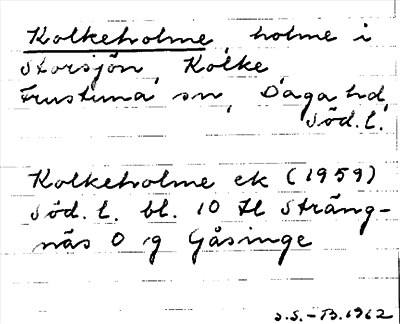 Kolkeholme, holme i
Storsjön, Kolke,
Frustuna sn, Daga hd,
Söd. l.
Kolkeholme ek (1959)
Söd. l. bl. 10 Il Sträng-
näs O g Gåsinge
S.S.-B.1962